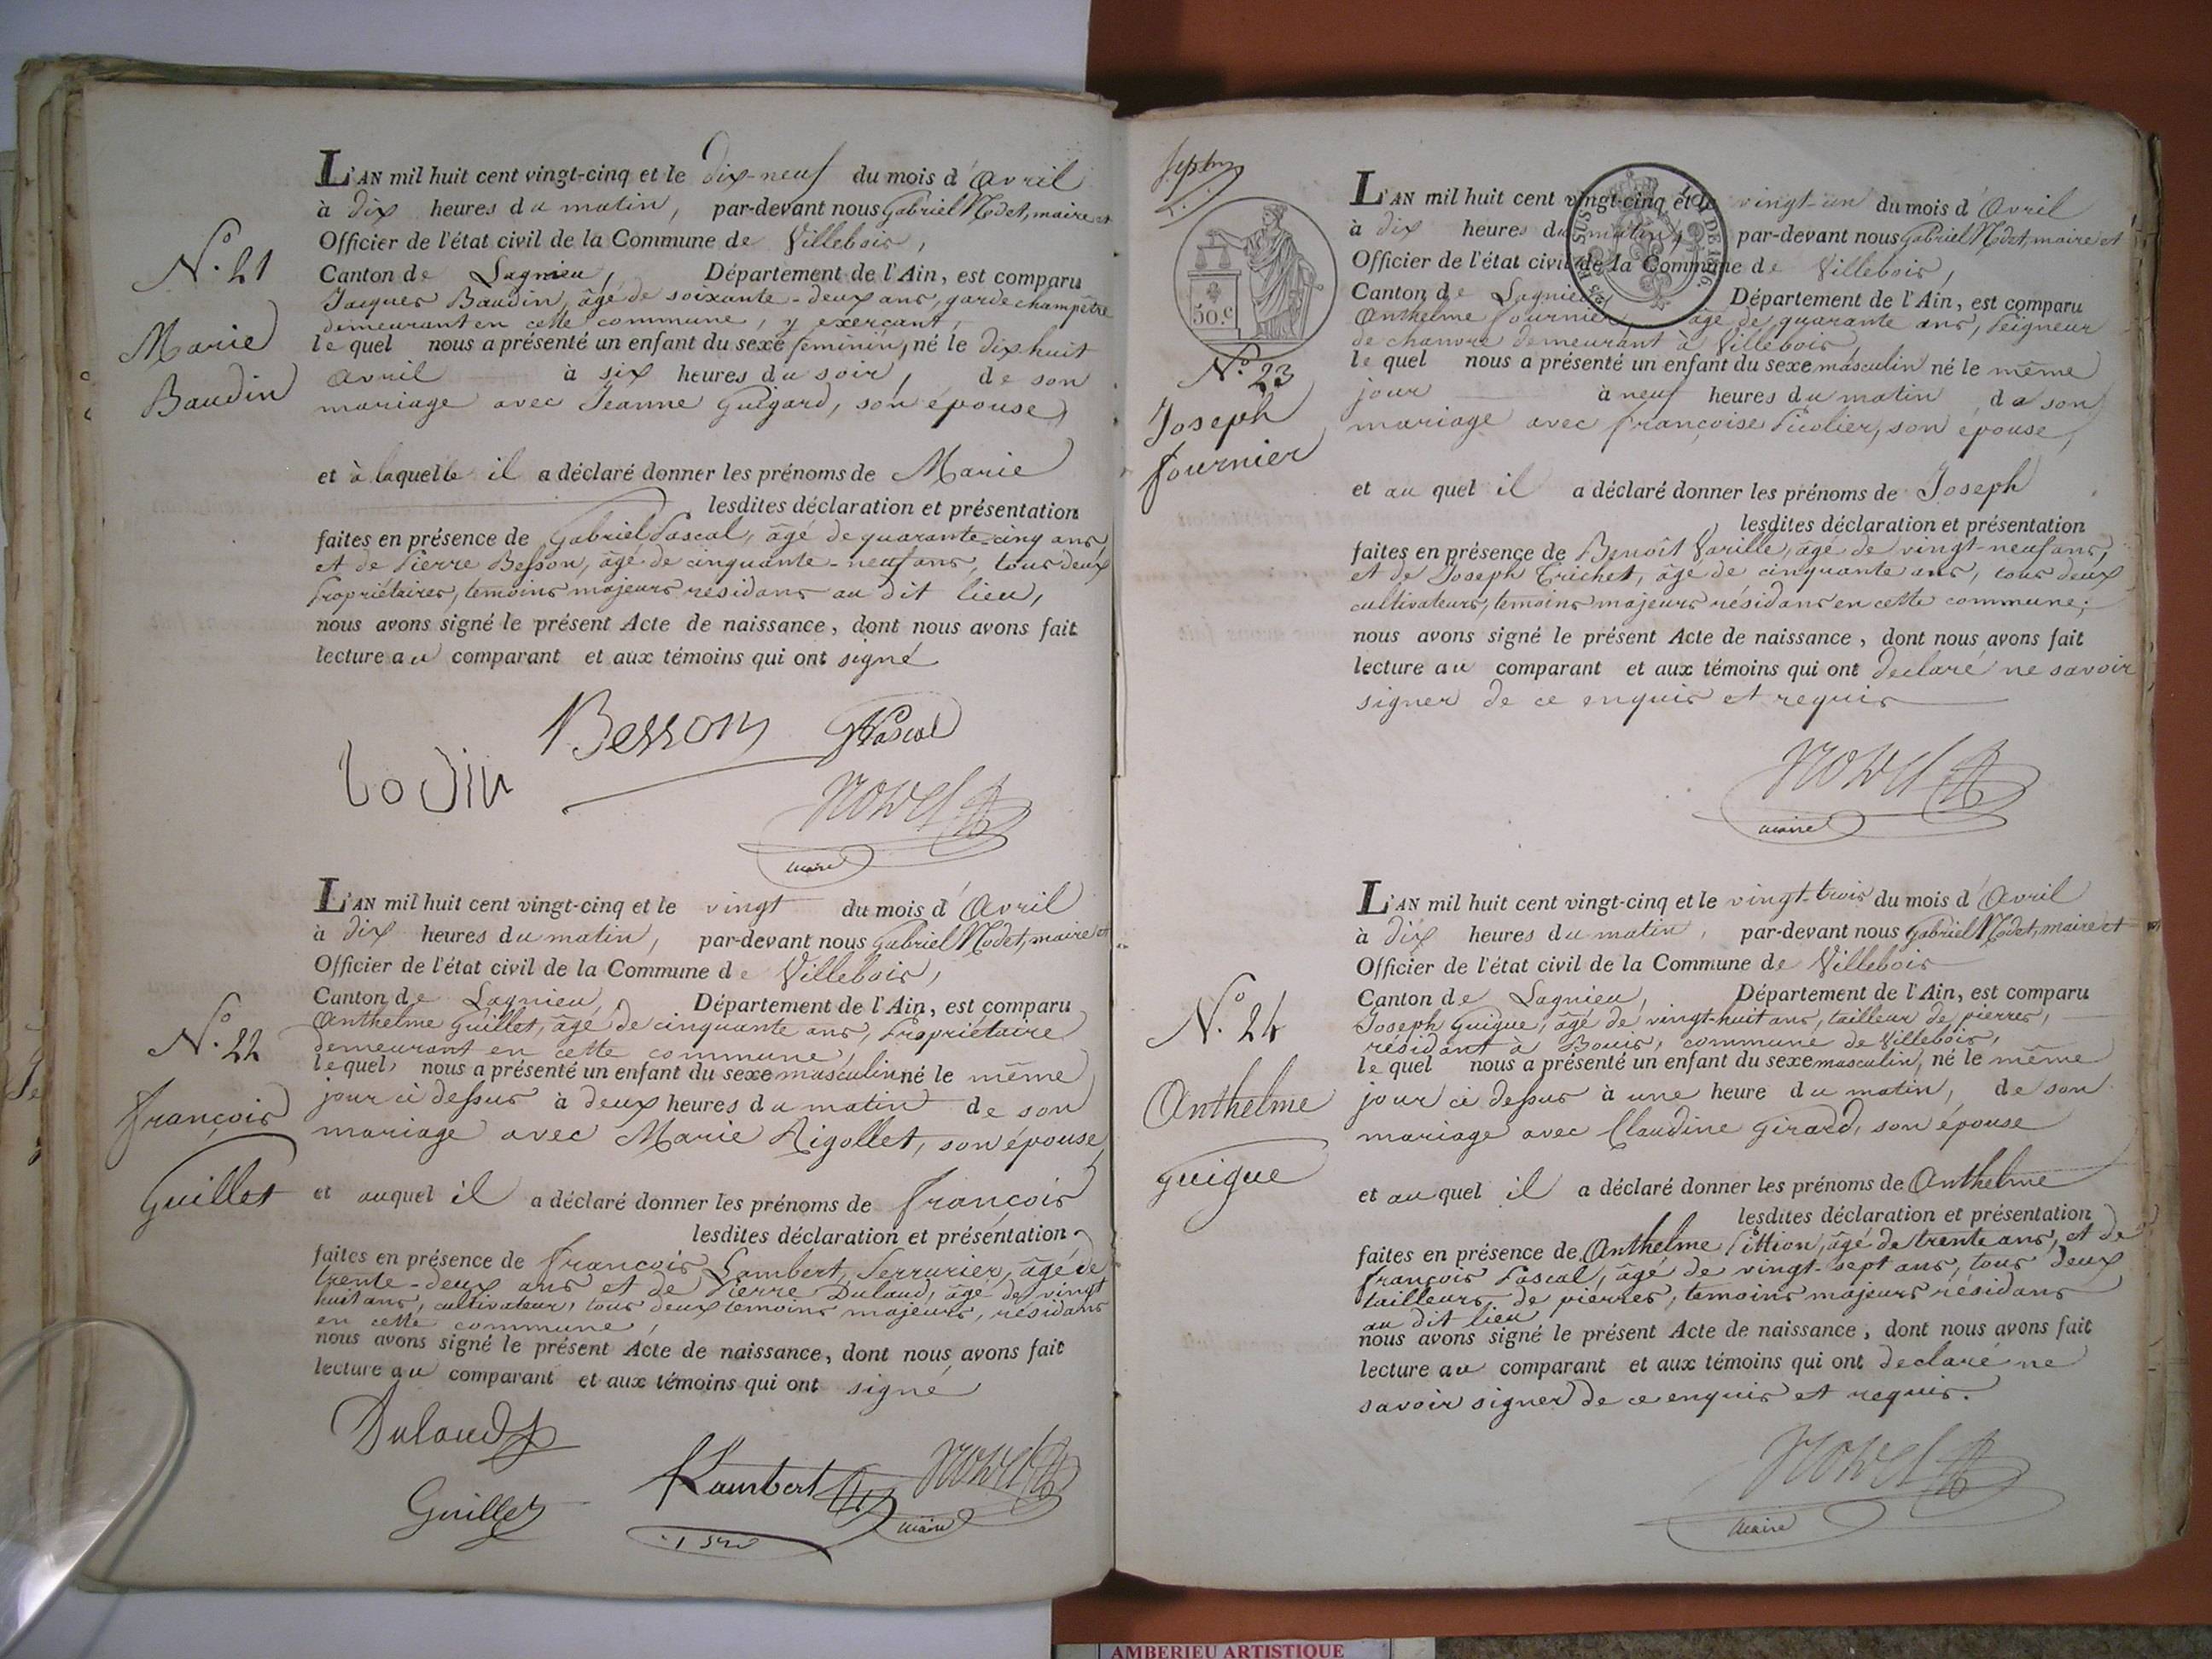 N.º 21
Marie
Baudin
L'AN mil huit cent vingt-cinq et le dix-neuf du mois d'Avril
à dix heures du matin, par-devant nous Gabriel Nodet, maire et
Officier de l'état civil de la Commune de Villebois,
Canton de Lagnieu, Département de l'Ain, est comparu
Jacques Baudin, âgé de soixante-deux ans, garde champêtre
demeurant en cette commune, y exerçant,
lequel nous a présenté un enfant du sexe féminin, né le dix huit
avril à six heures du soir, de son
mariage avec Jeanne Guigard, son épouse
et à laquelle il a déclaré donner les prénoms de Marie
lesdites déclaration et présentation
faites en présence de Gabriel Pascal, âgé de quarante-cinq ans
et de Pierre Besson, âgé de cinquante-neuf ans, tous deux
propriétaires, temoins majeurs résidans au dit lieu,
nous avons signé le présent Acte de naissance, dont nous avons fait
lecture au comparant et aux témoins qui ont signé
Besson GPascal
bodin
Nodet
maire
N.º 22
françois
Guillet
L'AN mil huit cent vingt-cinq et le vingt du mois d'Avril
à dix heures du matin, par-devant nous Gabriel Nodet, maire et
Officier de l'état civil de la Commune de Villebois,
Canton de Lagnieu, Département de l'Ain, est comparu
Anthelme Guillet, âgé de cinquante ans, Propriétaire
demeurant en cette commune,
lequel nous a présenté un enfant du sexe masculin né le même
jour ci dessus à deux heures du matin de son
mariage avec Marie Rigollet, son épouse,
et auquel il a déclaré donner les prénoms de françois
lesdites déclaration et présentation
faites en présence de françois Lambert, Serrurier, âgé de
trente-deux ans et de Pierre Dulaud, âgé de vingt
huit ans, cultivateur, tous deux temoins majeurs, résidans
en cette commune,
nous avons signé le présent Acte de naissance, dont nous avons fait
lecture au comparant et aux témoins qui ont signé
Dulaud
Guillet Lambert Nodet
maire
50.c
N.º 23
Joseph
fournier
L'AN mil huit cent vingt-cinq et le vingt-un du mois d'Avril
à dix heures du matin, par-devant nous Gabriel Nodet, maire et
Officier de l'état civil de la Commune de Villebois,
Canton de Lagnieu, Département de l'Ain, est comparu
Anthelme fournier, âgé de quarante ans, Peigneur
de chanvre demeurant à Villebois,
lequel nous a présenté un enfant du sexe masculin né le même
jour à neuf heures du matin de son
mariage avec françoise Picolier, son épouse,
et au quel il a déclaré donner les prénoms de Joseph
lesdites déclaration et présentation
faites en présence de Benoît Varille, âgé de vingt-neuf ans,
et de Joseph Trichet, âgé de cinquante ans, tous deux
cultivateurs, temoins majeurs résidans en cette commune;
nous avons signé le présent Acte de naissance, dont nous avons fait
lecture au comparant et aux témoins qui ont declaré ne savoir
signer de ce enquis et requis
Nodet
maire
N.º 24
Anthelme
guigue
L'AN mil huit cent vingt-cinq et le vingt-trois du mois d'Avril
à dix heures du matin, par-devant nous Gabriel Nodet, maire et
Officier de l'état civil de la Commune de Villebois
Canton de Lagnieu, Département de l'Ain, est comparu
Joseph Guigue, âgé de vingt-huit ans, tailleur de pierres,
résidant à Bouis, commune de Villebois,
lequel nous a présenté un enfant du sexe masculin, né le même
jour ci dessus à une heure du matin, de son
mariage avec Claudine Girard, son épouse
et au quel il a déclaré donner les prénoms de Anthelme
lesdites déclaration et présentation
faites en présence de Anthelme Pittion, âgé de trente ans, et de
françois Pascal, âgé de vingt-sept ans, tous deux
tailleurs de pierres, temoins majeurs résidans
au dit lieu
nous avons signé le présent Acte de naissance, dont nous avons fait
lecture au comparant et aux témoins qui ont declaré ne
savoir signer de ce enquis et requis.
Nodet
maire
AMBERIEU ARTISTIQUE